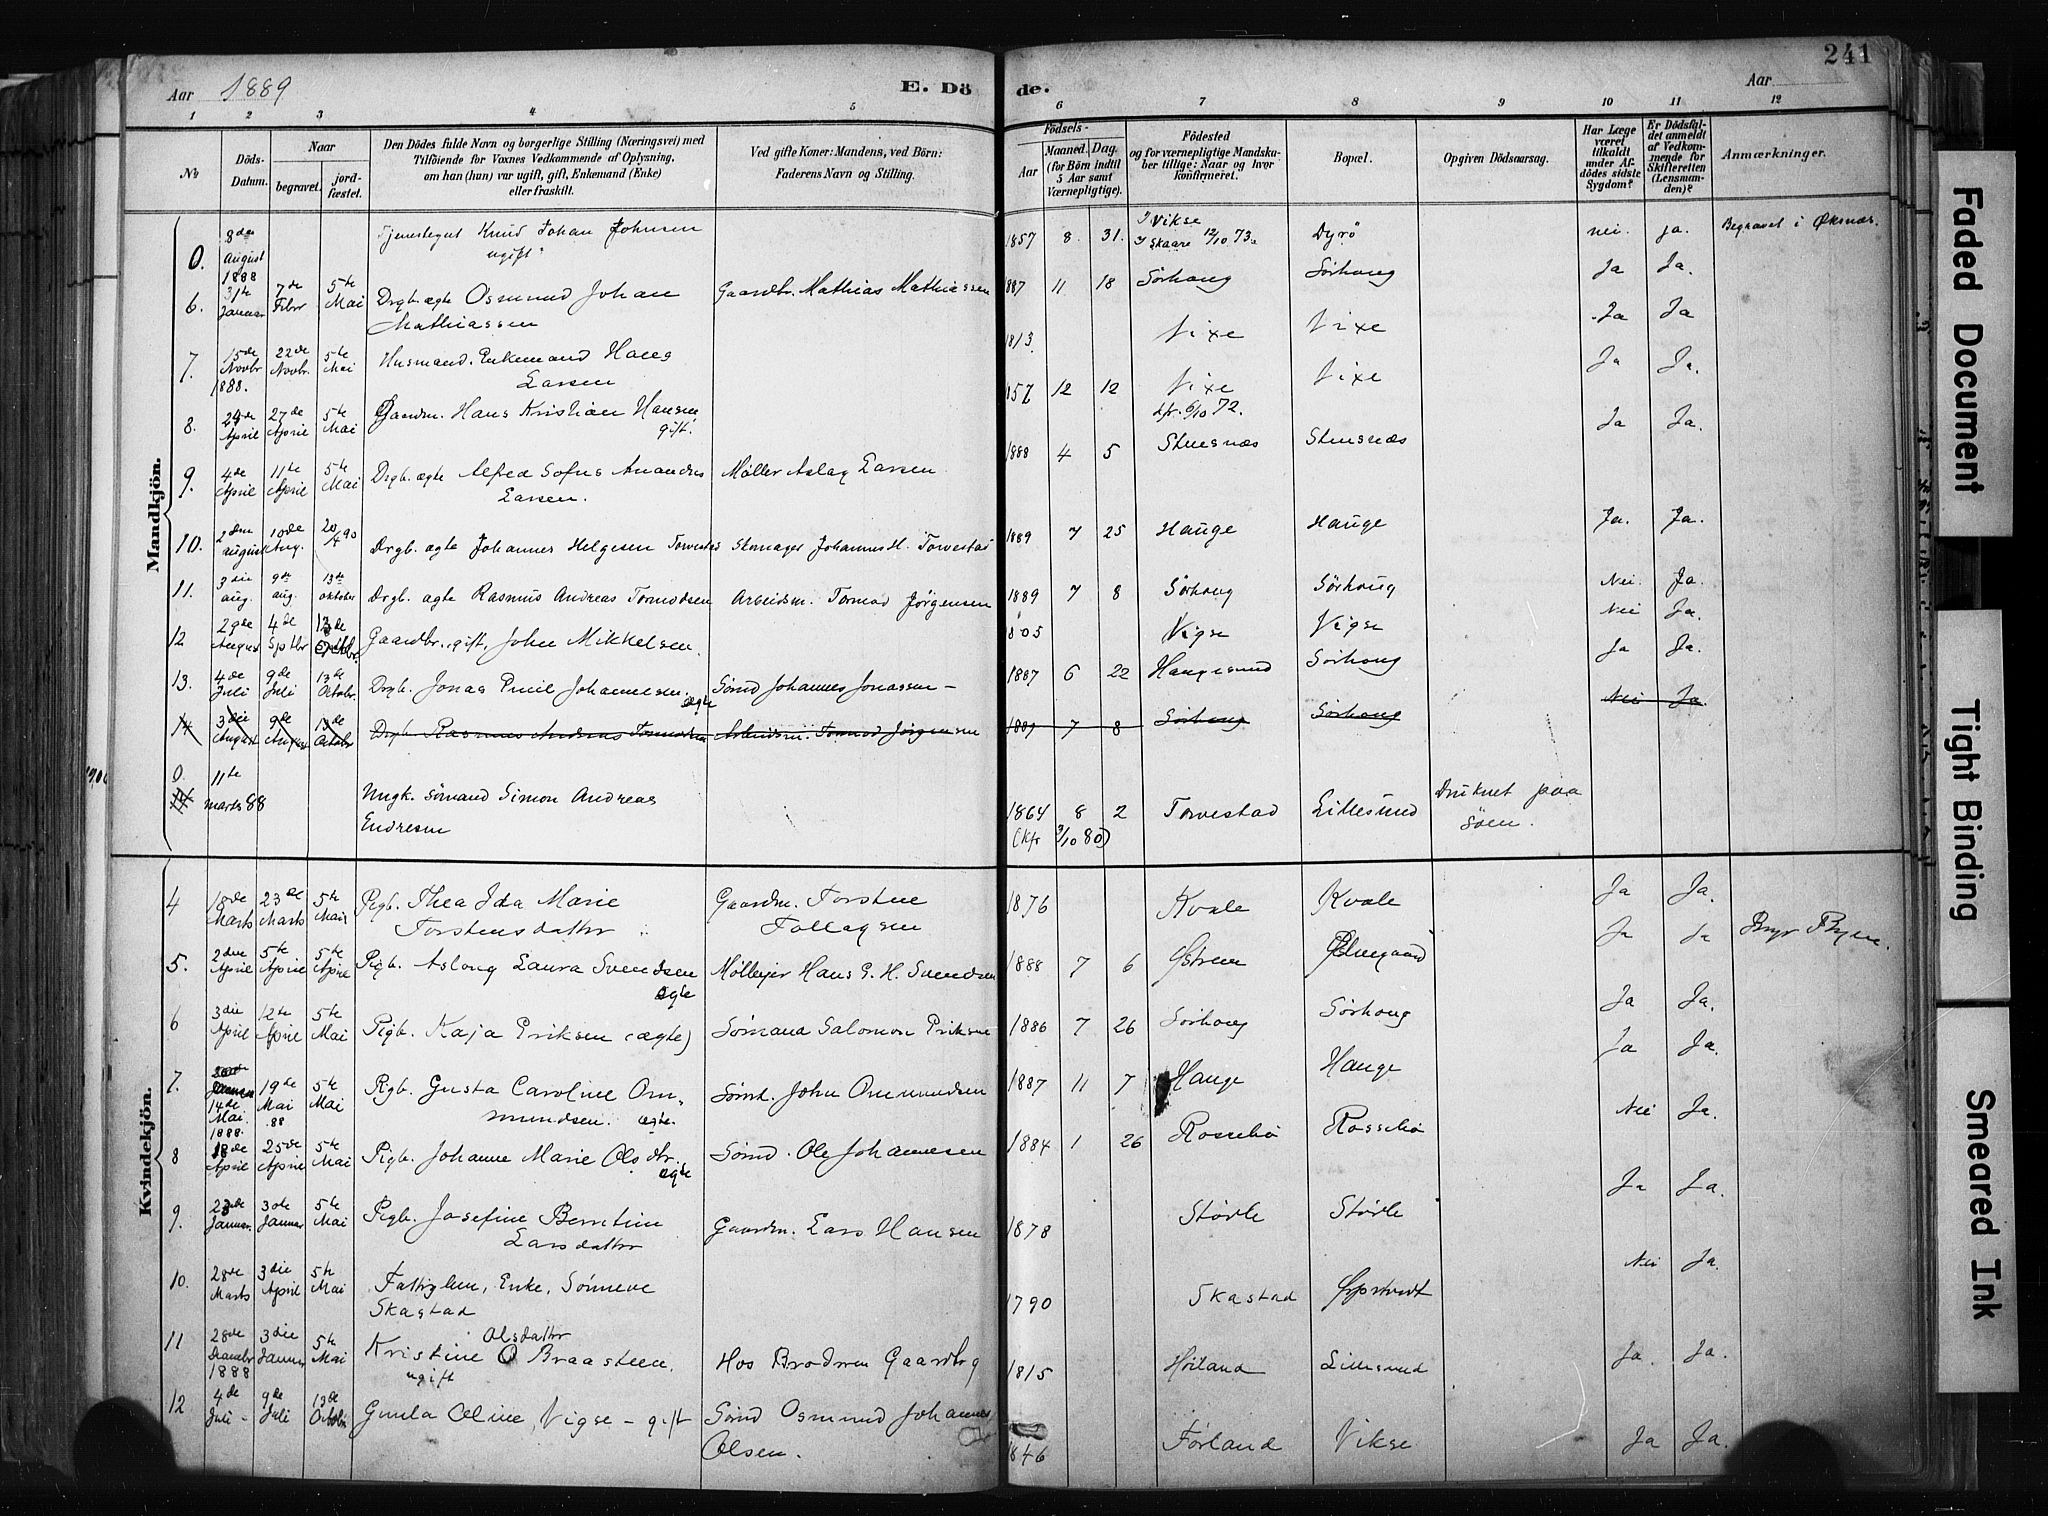 241
Aar 1889 E. Dö
de. Aar
1 2 3 4 5 6 7 8 9 10 11 12
No
Döds-Datum.
Naar
begravet.
jord-fæstet.
Den Dödes fulde Navn og borgerlige Stilling (Næringsvei) med
Tilföiende for Voxnes Vedkommende af Oplysning,
om han (hun) var ugift, gift, Enkemand (Enke)
eller fraskilt.
Ved gifte Koner: Mandens, ved Börn:
Faderens Navn og Stilling.
Födsels-
Aar
Maaned. Dag.
(for Börn indtil
5 Aar samt
Værnepligtige).
Födested
og for værnepligtige Mandska-
ber tillige: Naar og hvor
konfirmeret.
Bopæl.
Opgiven Dödsaarsag.
Har Læge
været
tilkaldt
under Af-
dödes sidste
Sygdom?
Er Dödsfal-
det anmeldt
af Vedkom-
mende for
Skifteretten
(Lensman-
den)?
Anmærkninger.
Mandkjön.
0. 8de August 1888 Tjenestegut Knud Johan Johnsen ugift 1857 8. 31. Vikse Skaare 12/10 73. Dyrö nei. ja. Begravet i Øksnæs.
6. 31te Januar 7de Febr 5te Mai Drgb. ægte Osmund Johan Mathiassen Gaardbr. Mathias Mathiassen 1887 11 18 Sörhoug Sörhoug Ja Ja.
7. 15de Novbr 1888. 22de Novbr. 5te Mai Husmand. Enkemand Hans Larsen 1813 Vixe Vixe Ja Ja
8. 24de April 27de April 5te Mai Gaardm. Hans Kristian Hansen gift. 1857 12 12 Vixe kfr. 6/10 72. Vixe Ja Ja.
9. 4de April 11te April 5te Mai Drgb. ægte Alfred Sofus Amandus Larsen. Møller Aslag Larsen 1888 4 5 Stensnæs Stensnæs Ja Ja.
10. 2den august 10de Aug. 20/4 90 Drgb. ægte Johannes Helgesen Torvestad Skomager Johannes H. Torvestad 1889 7 25 Hauge Hauge Ja. Ja.
11. 3die aug. 9de aug. 13de oktober Drgb. ægte Rasmus Andreas Tormodsen Arbeidsm. Tormod Jörgensen 1889 7 8 Sörhoug Sörhoug Nei. Ja.
12 29de August 4de Sptbr 13de Gaardbr. gift, John Mikkelsen. 1805 Vigse Vigse Nei Ja.
13. 4de Juli 9de Juli 13de Octobr Drgb. Jonas Emil Johannesen. ægte Sömd Johannes Jonassen – 1887 6 22 Haugesund Sörhoug Ja Ja.
14 3die August 9de August 13de Octobr Drgb. Rasmus Andreas Tormodsen Arbeidsm. Tormod Jörgensen 1889 7 8 Sörhoug Sörhoug Nei Ja
0. 11te marts 88 Ungk. sömand Simon Andreas Endresen 1864 8 2 (Kfr 3/10 80) Torvestad Lillesund Druknet paa Söen.
Kvindekjön.
4 18de Marts 23de Marts 5te Mai Pigb. Thea Ida Marie Torstensdatter Gaardm. Torsten Tollagsen 1876 Kvale Kvale Ja Ja.
5. 2den April 5te April 5te April Pigb. Aslaug Laura Svendsen ægte Møllejer Hans G. H. Svendsen 1888 7 6 Østrem Ja Ja
6 3die April 12te April 5te Mai Pigb. Kaja Eriksen (ægte) Sömand Salomon Eriksen 1886 7 26 Sörhoug Sörhoug Ja Ja.
7. 14de Mai. 1888. 19de Mai 88 5te Mai Pigb. Gusta Caroline Ommundsen. ægte. Sömd. John Ommundsen 1887 11 7 Hauge Hauge Ja Ja.
8 18de April 25de April 5te Mai Pigb. Johanne Marie Olsdtr. ægte Sömd. Ole Johannesen 1884 1 26 Rossebö Rossebö Nei Ja.
9. 23de Januar. 30de Januar 5te Mai Pigb. Josefine Berntine Larsdatter Gaardm. Lars Hansen 1878 Störle Störle Ja Ja.
10. 28de Marts 3die April 5te Mai Fattiglem, Enke, Sönneve Skastad 1790 Skastad Nei Ja.
11 28de Decembr 1888 3die Januar 5te Mai Kristine Olsdatter Braasteen ugift Hos Broderen Gaardbrg 1815 Høiland Lillesund Ja. Ja.
12 4de Juli – 9de Juli 13de Octobr Gunla Oline Vigse – gift Sömd Osmund Johannes Olsen. 1846 Førland Vikse Ja Ja.
Faded Document
Tight Binding
Smeared Ink